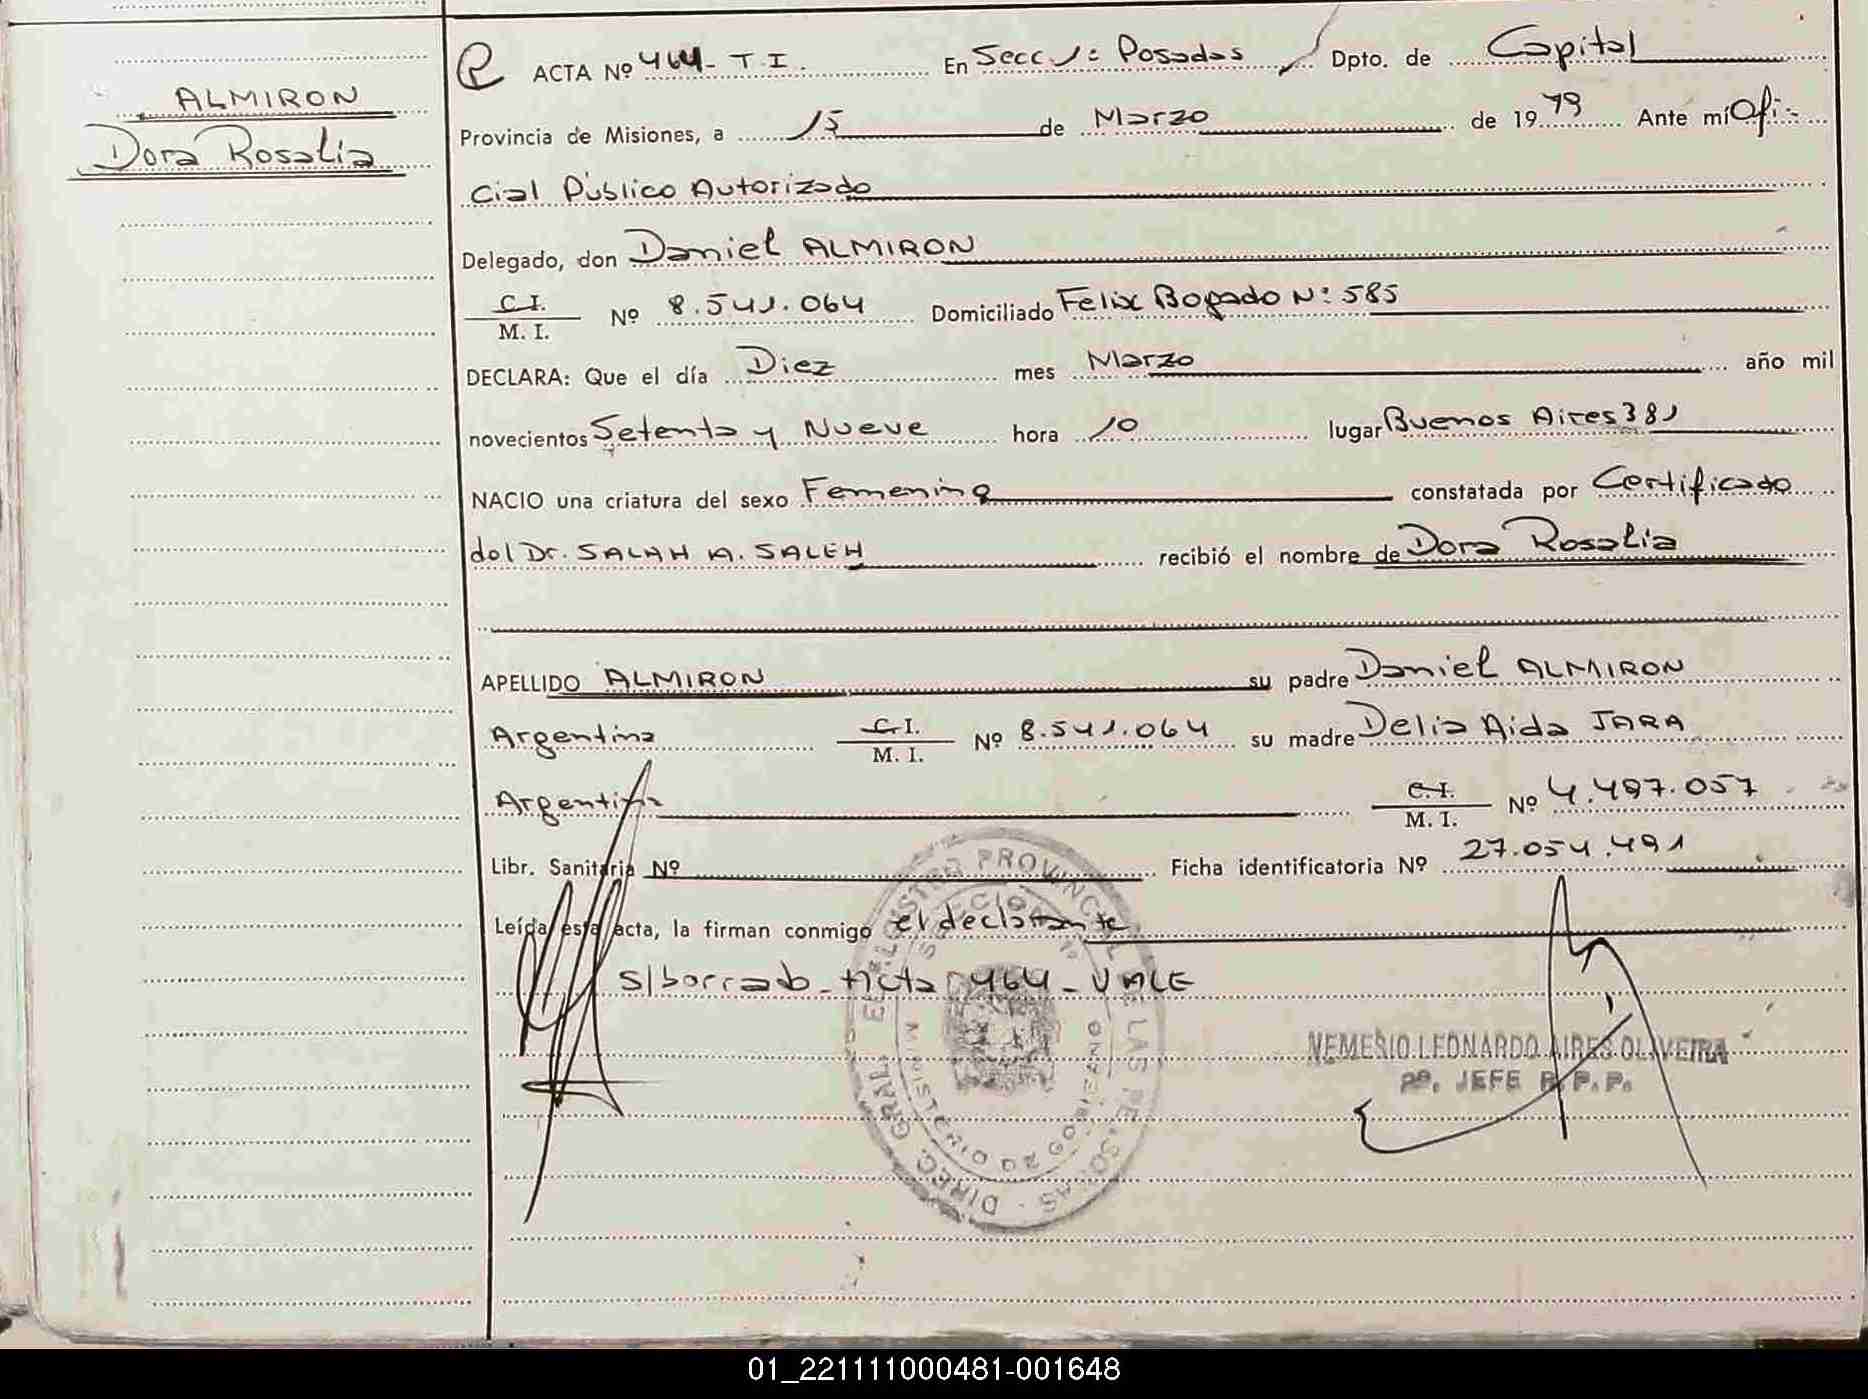 ALMIRON
Dora Rosalia
ACTA Nº 464 - T.I. En Secc 1: Posadas Dpto. de Capital
Provincia de Misiones, a 15 de Marzo de 1979 Ante mí Ofi-
cial Público Autorizado
Delegado, don Daniel ALMIRON
C.I. / M. I. Nº 8.541.064 Domiciliado Felix Bogado Nº 585
DECLARA: Que el día Diez mes Marzo año mil
novecientos Setenta y Nueve hora 10 lugar Buenos Aires 381
NACIO una criatura del sexo Femenino constatada por Certificado
del Dr. SALAH A. SALEH recibió el nombre de Dora Rosalia
APELLIDO ALMIRON su padre Daniel ALMIRON
Argentina C.I. / M. I. Nº 8.541.064 su madre Delia Aida JARA
Argentina C.I. / M. I. Nº 4.497.057
Libr. Sanitaria Nº Ficha identificatoria Nº 27.054.491
Leída esta acta, la firman conmigo el declarante
S/borrado - Acta 464 - VALE
NEMESIO LEONARDO AIRES OLIVEIRA
JEFE R. P. P.
DIREC. GRAL. DEL REGISTRO PROVINCIAL DE LAS PERSONAS
SECCION 1º
MINISTERIO DE GOBIERNO
01_221111000481-001648